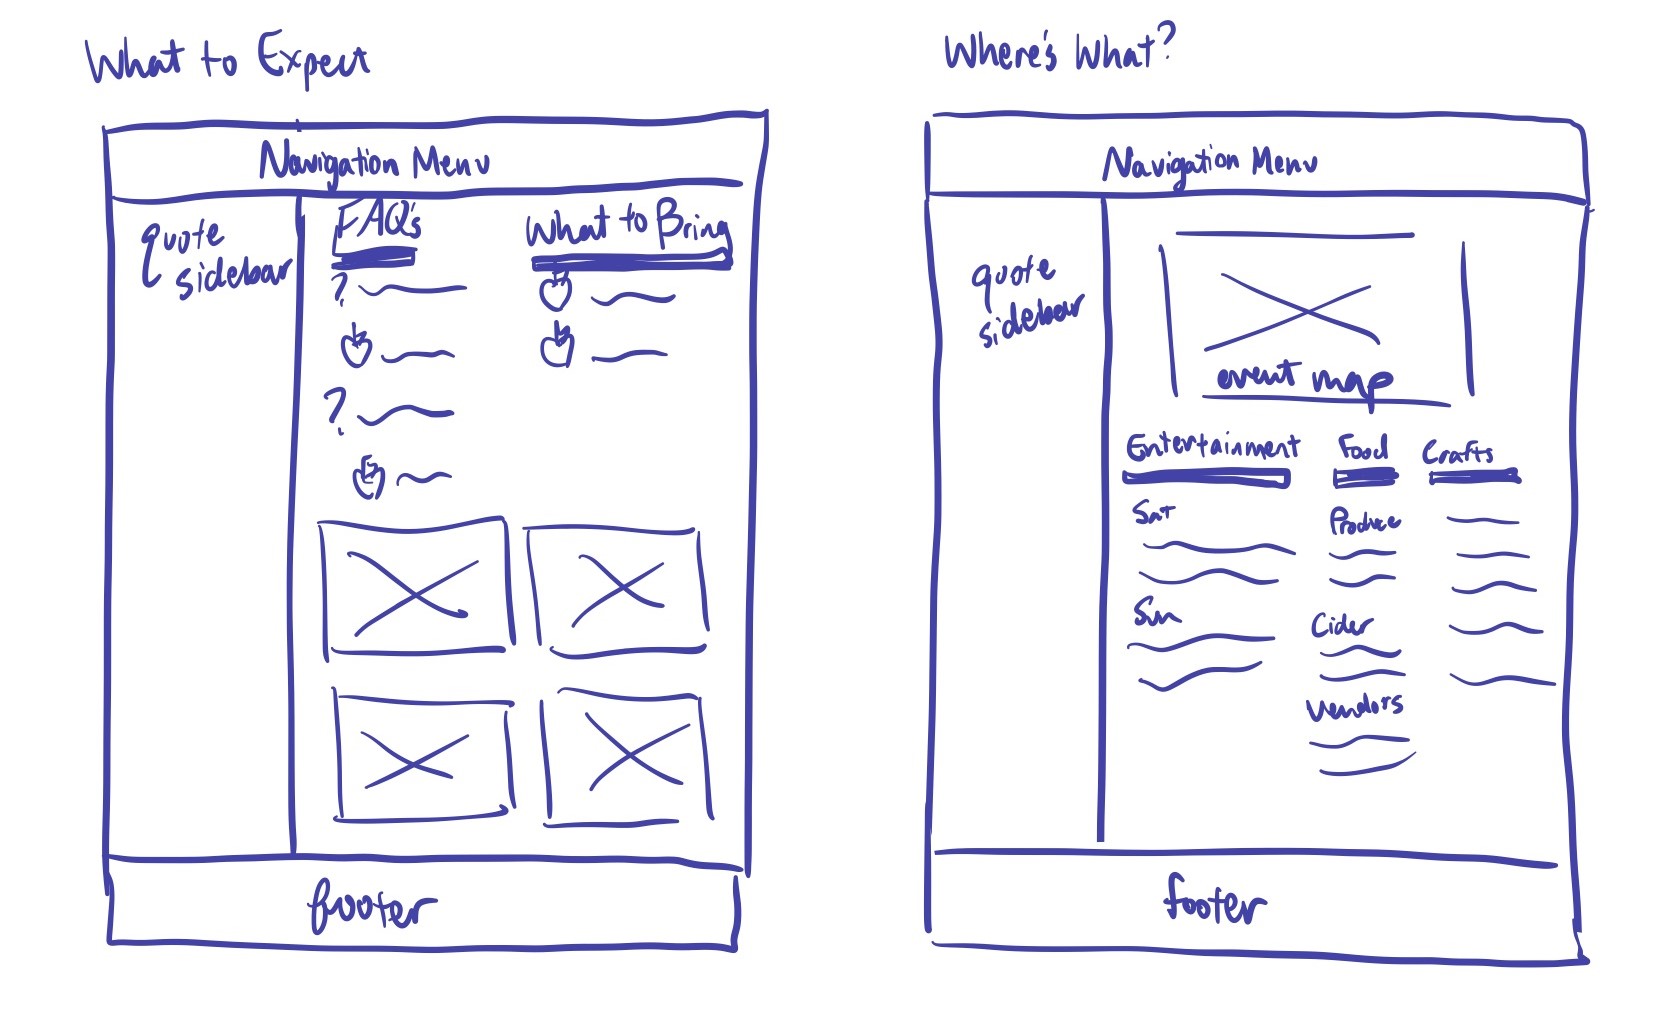 What to Expect
Navigation Menu
quote
sidebar
FAQ's
?
?
What to Bring
footer
Where's What?
Navigation Menu
quote
sidebar
event map
Entertainment
Sat
Sun
Food
Produce
Cider
Vendors
Crafts
footer